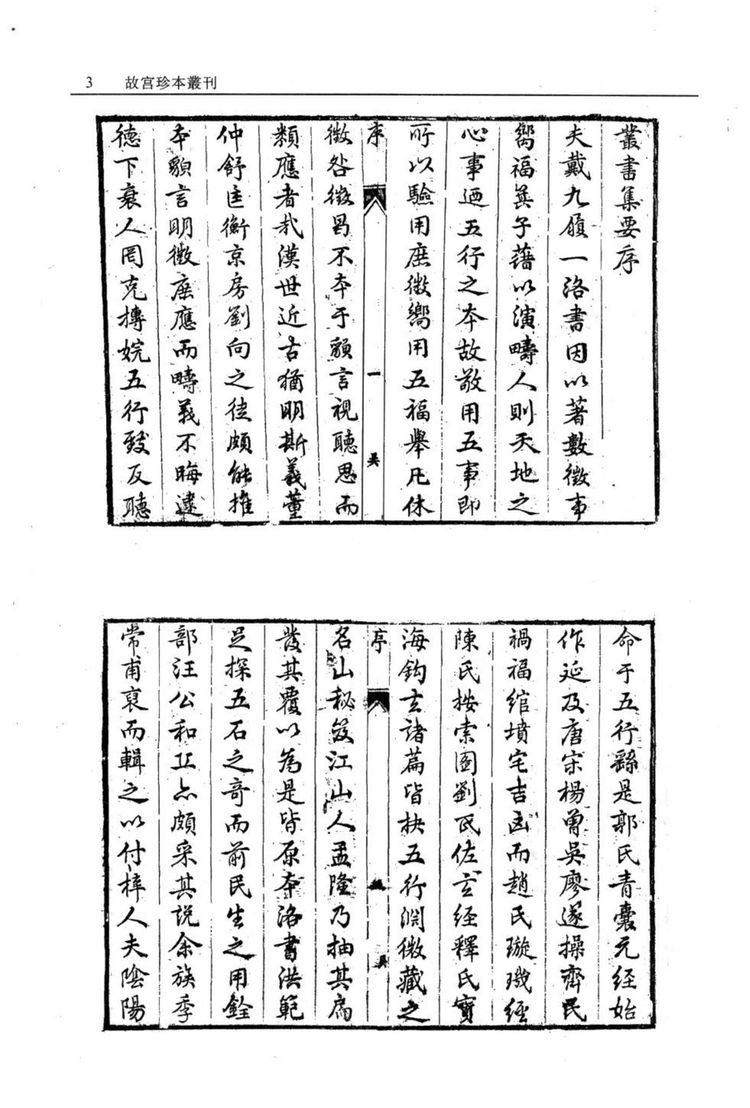 3 故宫珍本叢刊
叢書集要序
夫戴九履一洛書因以著數徵事
嚮福箕子藉以演疇人則天地之
心事迺五行之本故敬用五事即
所以驗用庶徵嚮用五福舉凡休
徵咎徵曷不本于貌言視聽思而
類應者哉漢世近古猶明斯義董
仲舒匡衡京房劉向之徒頗能推
本貌言明徵庶應而疇義不晦逮
德下衰人罔克摶婉五行發反聽
序 一
命于五行繇是郭氏青囊元經始
作延及唐宋楊曾吳廖遂操齊民
禍福綰墳宅吉凶而趙氏璇璣經
陳氏按索圖劉氏佐玄經釋氏寶
海鈎玄諸篇皆抉五行淵微藏之
名山秘笈江山人孟隆乃抽其扃
發其覆以為是皆原本洛書洪範
足探五石之奇而前民生之用銓
部汪公和
亦頗采其說余族季
常甫裒而輯之以付梓人夫陰陽
序